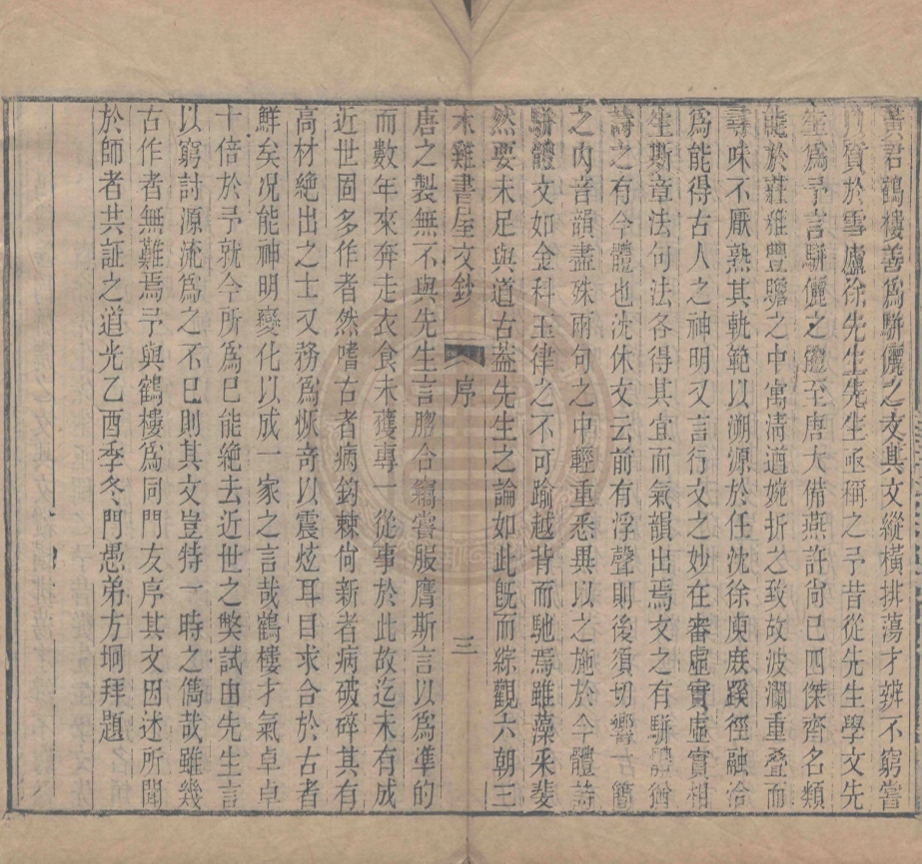 黃君鶴樓善爲駢儷之文其文縱橫排蕩才辨不窮嘗
質於雪廬徐先生先生亟稱之予昔從先生學文先
生爲予言駢儷之體至唐大備燕許尙已四傑齊名類
能於莊雅豐贍之中寓淸遒婉折之致故波瀾重叠而
尋味不厭熟其軌範以溯源於任沈徐庾庶蹊徑融洽
爲能得古人之神明又言行文之妙在審虛實虛實相
生斯章法句法各得其宜而氣韻出焉文之有駢體猶
詩之有今體也沈休文云前有浮聲則後須切響一簡
之內音韻盡殊兩句之中輕重悉異以之施於今體詩
駢體文如金科玉律之不可踰越背而馳焉雖藻采斐
然要未足與道古葢先生之論如此旣而綜觀六朝三
木雞書屋文鈔 序 三
唐之製無不與先生言脗合竊嘗服膺斯言以爲準的
而數年來奔走衣食未獲專一從事於此故迄未有成
近世固多作者然嗜古者病鉤棘尙新者病破碎其有
高材絕出之士又務爲恢奇以震炫耳目求合於古者
鮮矣况能神明變化以成一家之言哉鶴樓才氣卓卓
十倍於予就今所爲已能絕去近世之獘試由先生言
以窮討源流爲之不已則其文豈特一時之儁哉雖幾
古作者無難焉予與鶴樓爲同門友序其文因述所聞
於師者共証之道光乙酉季冬門愚弟方坰拜題